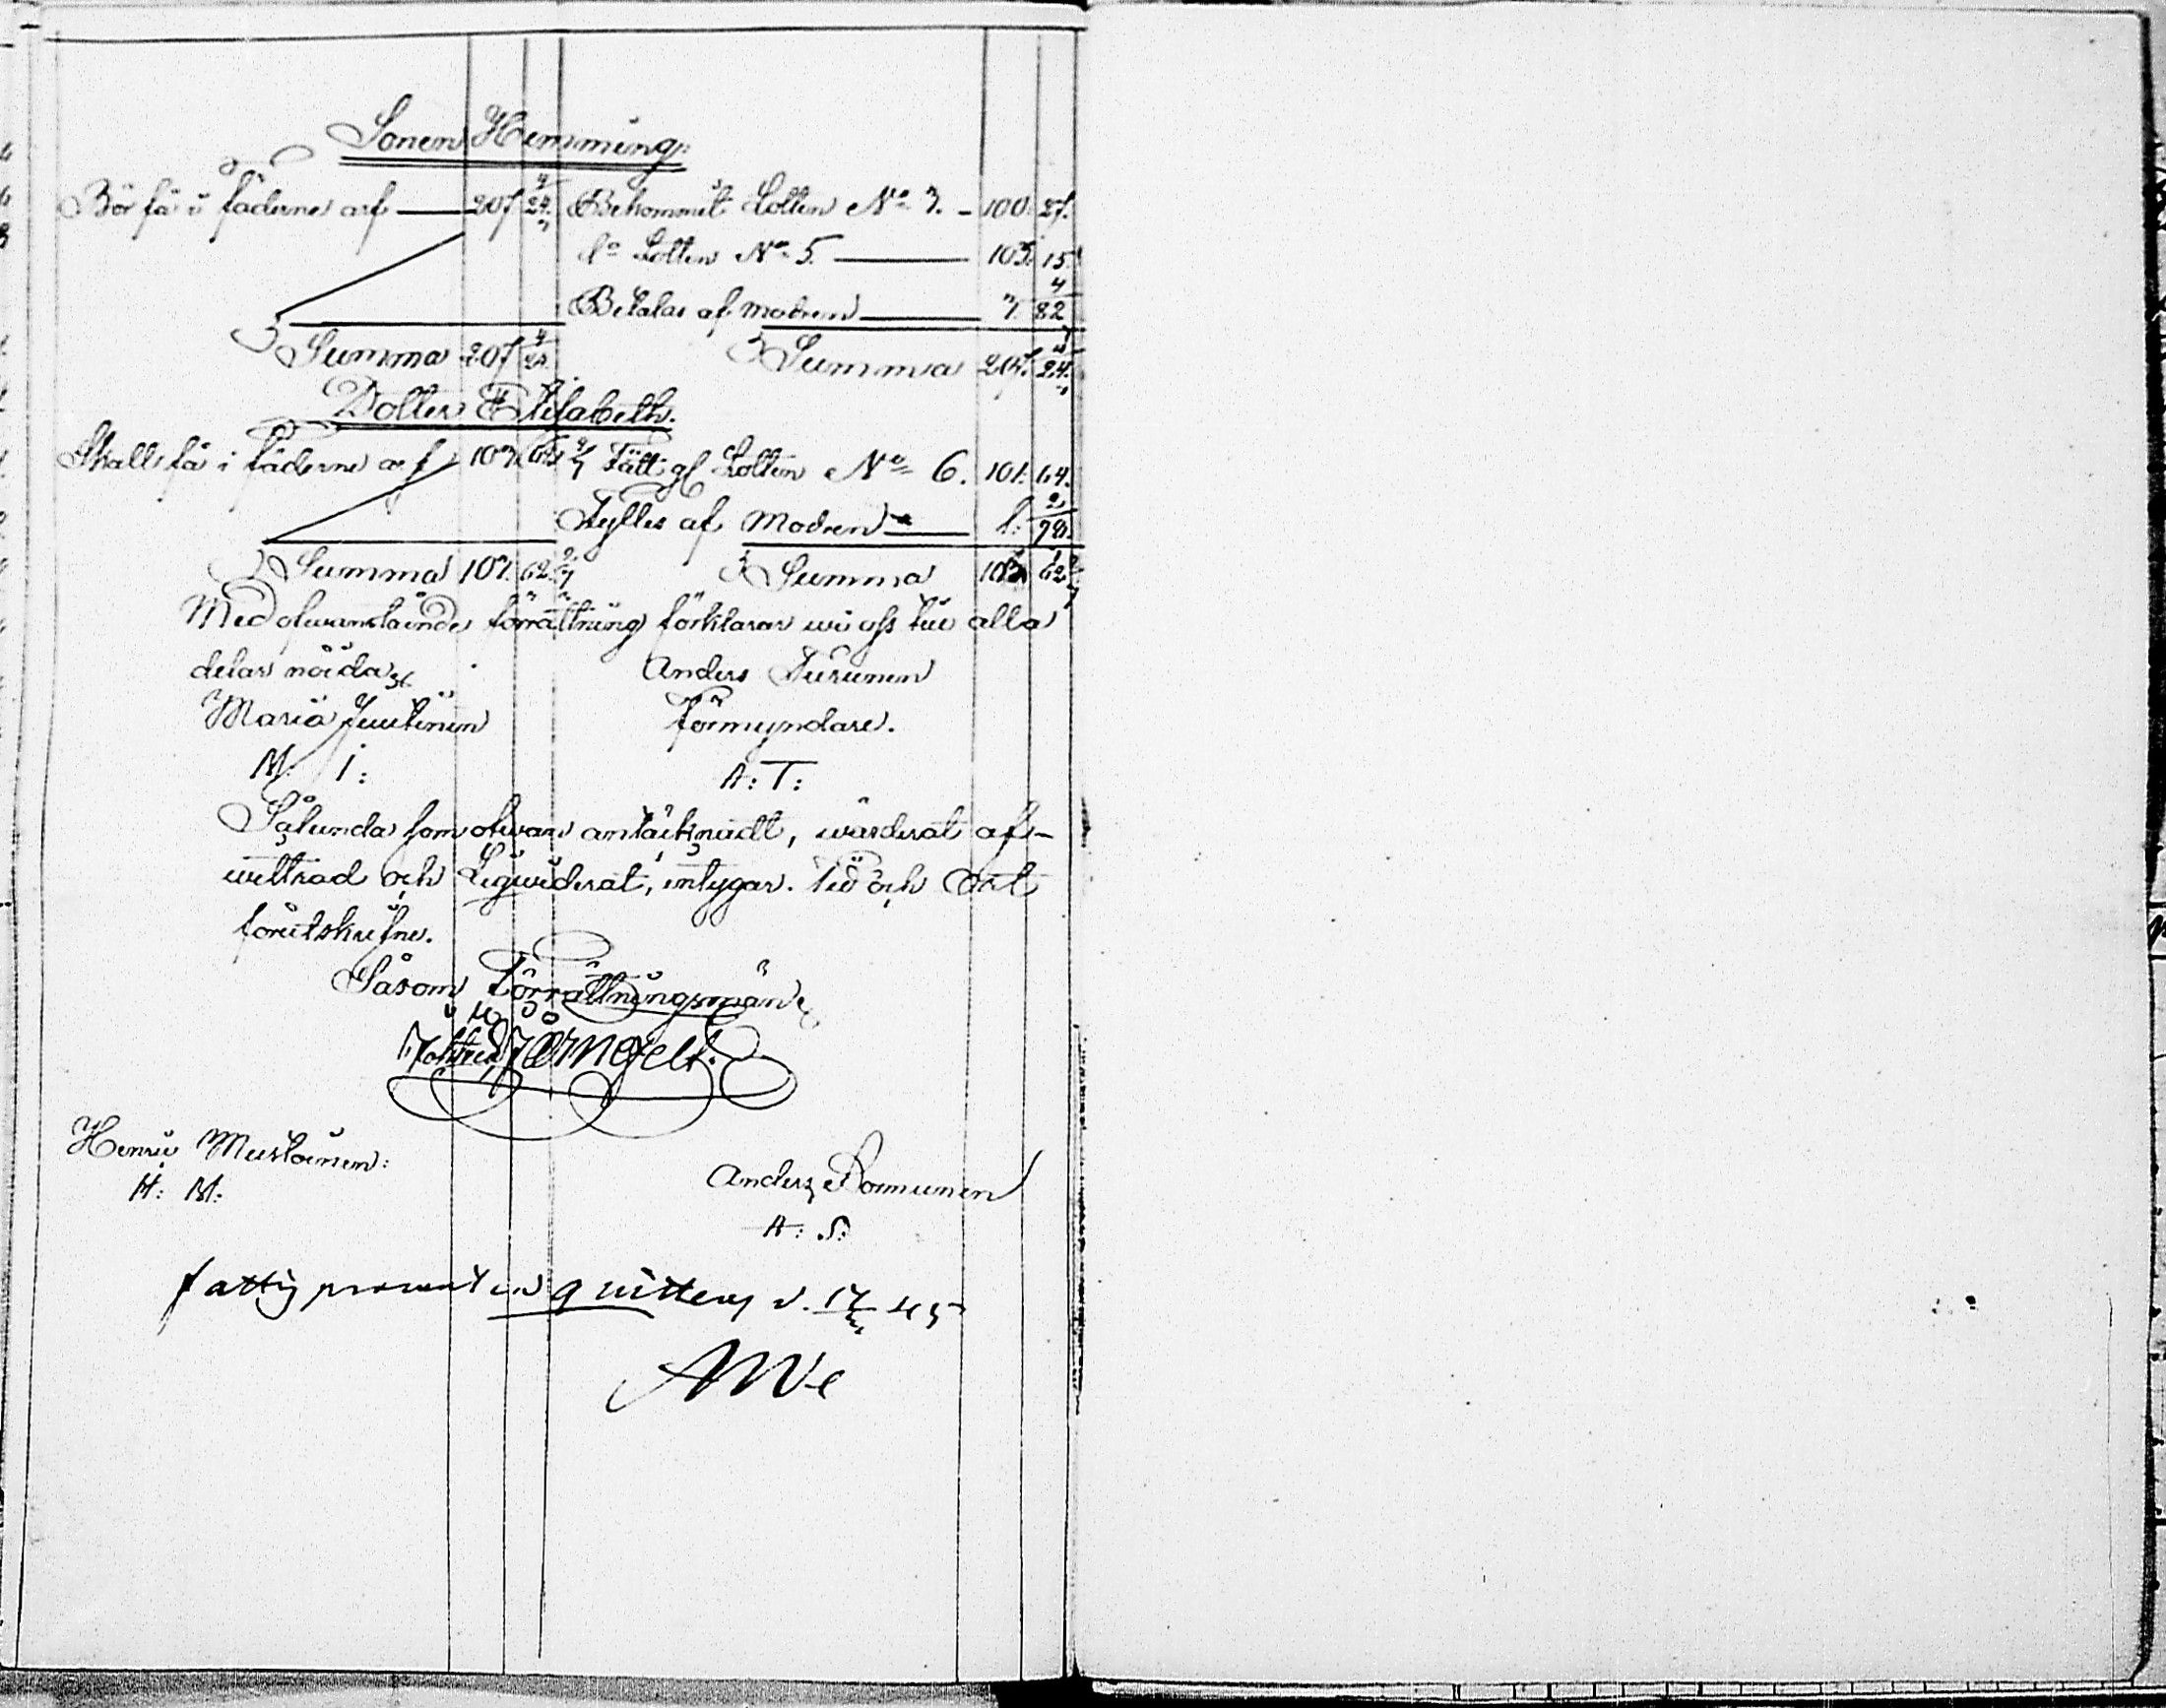 Sonen Hemming:
Bör få i fäderne arf — 207 24 4/7 Bekommit Lotten No 3. — 100: 27.
do Lotten No 5. — 105. 15.
Betalas af modren — 1. 82 4/7
Summa 207 24 4/7 Summa 207. 24 4/7
Dotter Elisabeth.
Skall få i fäderne arf 103. 62 2/7 Fått Lotten No 6. 101: 64.
Fylles af Modren — 1: 98 2/7
Summa 103. 62 2/7 Summa 103 62 2/7
Med ofwanstående förrättning förklarar wi oss till alla
delar nöida
Maria Juutinen
M: I:
Anders Turunen
Förmyndare.
A: T:
Sålunda som ofwan antäcknadt, wärderat af-
wittrad och Liqwiderat, intygar. Tid och Ort
förutskrifne.
Såsom Förrättningsmän
Järnefelt.
Henric Mustoinen:
H: M:
Anders Ronnunen
A: S:
fattig procent en quitteras d. 17 45